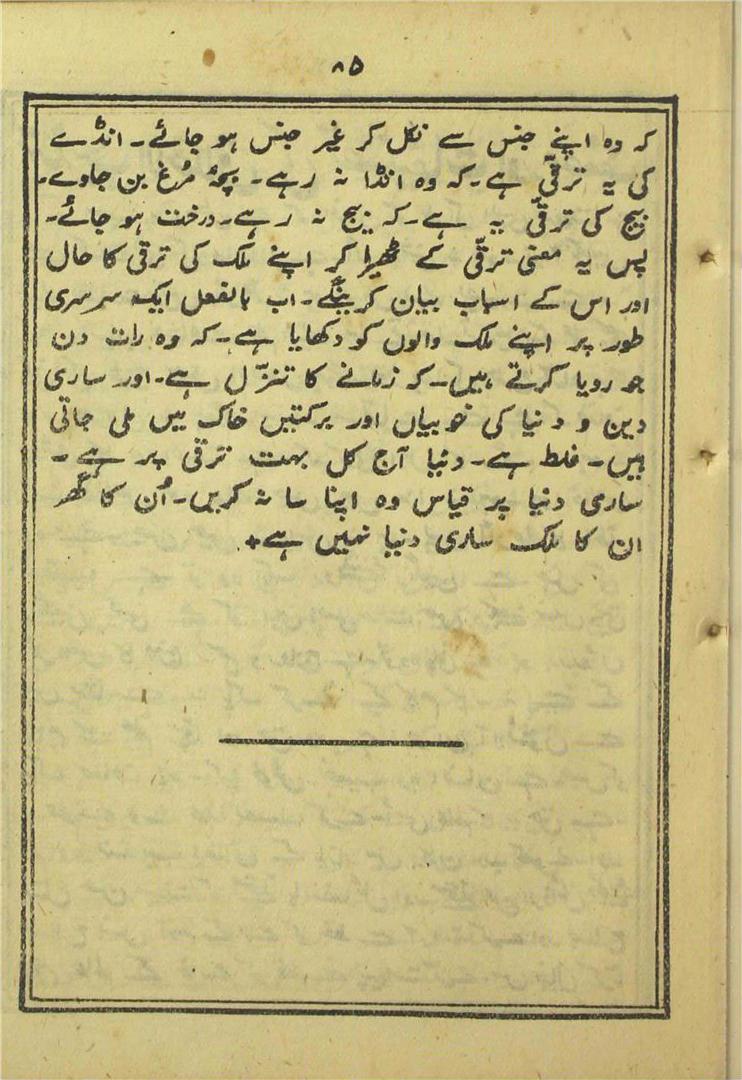 ۸۵
کہ وہ اپنے جنس سے نکل کر غیر جنس ہو جائے۔ انڈے
کی یہ ترقّی ہے۔ کہ وہ انڈا نہ رہے۔ بچۂ مُرغ بن جاوے۔
بیج کی ترقّی یہ ہے۔ کہ بیج نہ رہے۔ درخت ہو جائے۔
پس یہ معنی ترقّی کے ٹھیرا کر اپنے ملک کی ترقی کا حال
اور اس کے اسباب بیان کرینگے۔ اب بالفعل ایک سرسری
طور پر اپنے ملک والوں کو دکھایا ہے۔ کہ وہ رات دن
جو رویا کرتے ہیں۔ کہ زمانے کا تنزّل ہے۔ اور ساری
دین و دنیا کی خوبیاں اور برکتیں خاک میں ملی جاتی
ہیں۔ غلط ہے۔ دنیا آج کل بہت ترقی پر ہے۔
ساری دنیا پر قیاس وہ اپنا سا نہ کریں۔ اُن کا گھر
ان کا ملک ساری دنیا نہیں ہے+